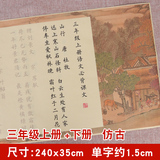 三年级上册语文必背课文
山行 唐 杜牧
远上寒山石径斜 白云生处有人家
停车坐爱枫林晚 霜叶红于二月花
三年级上册+下册 仿古
尺寸:240x35cm 单字约1.5cm